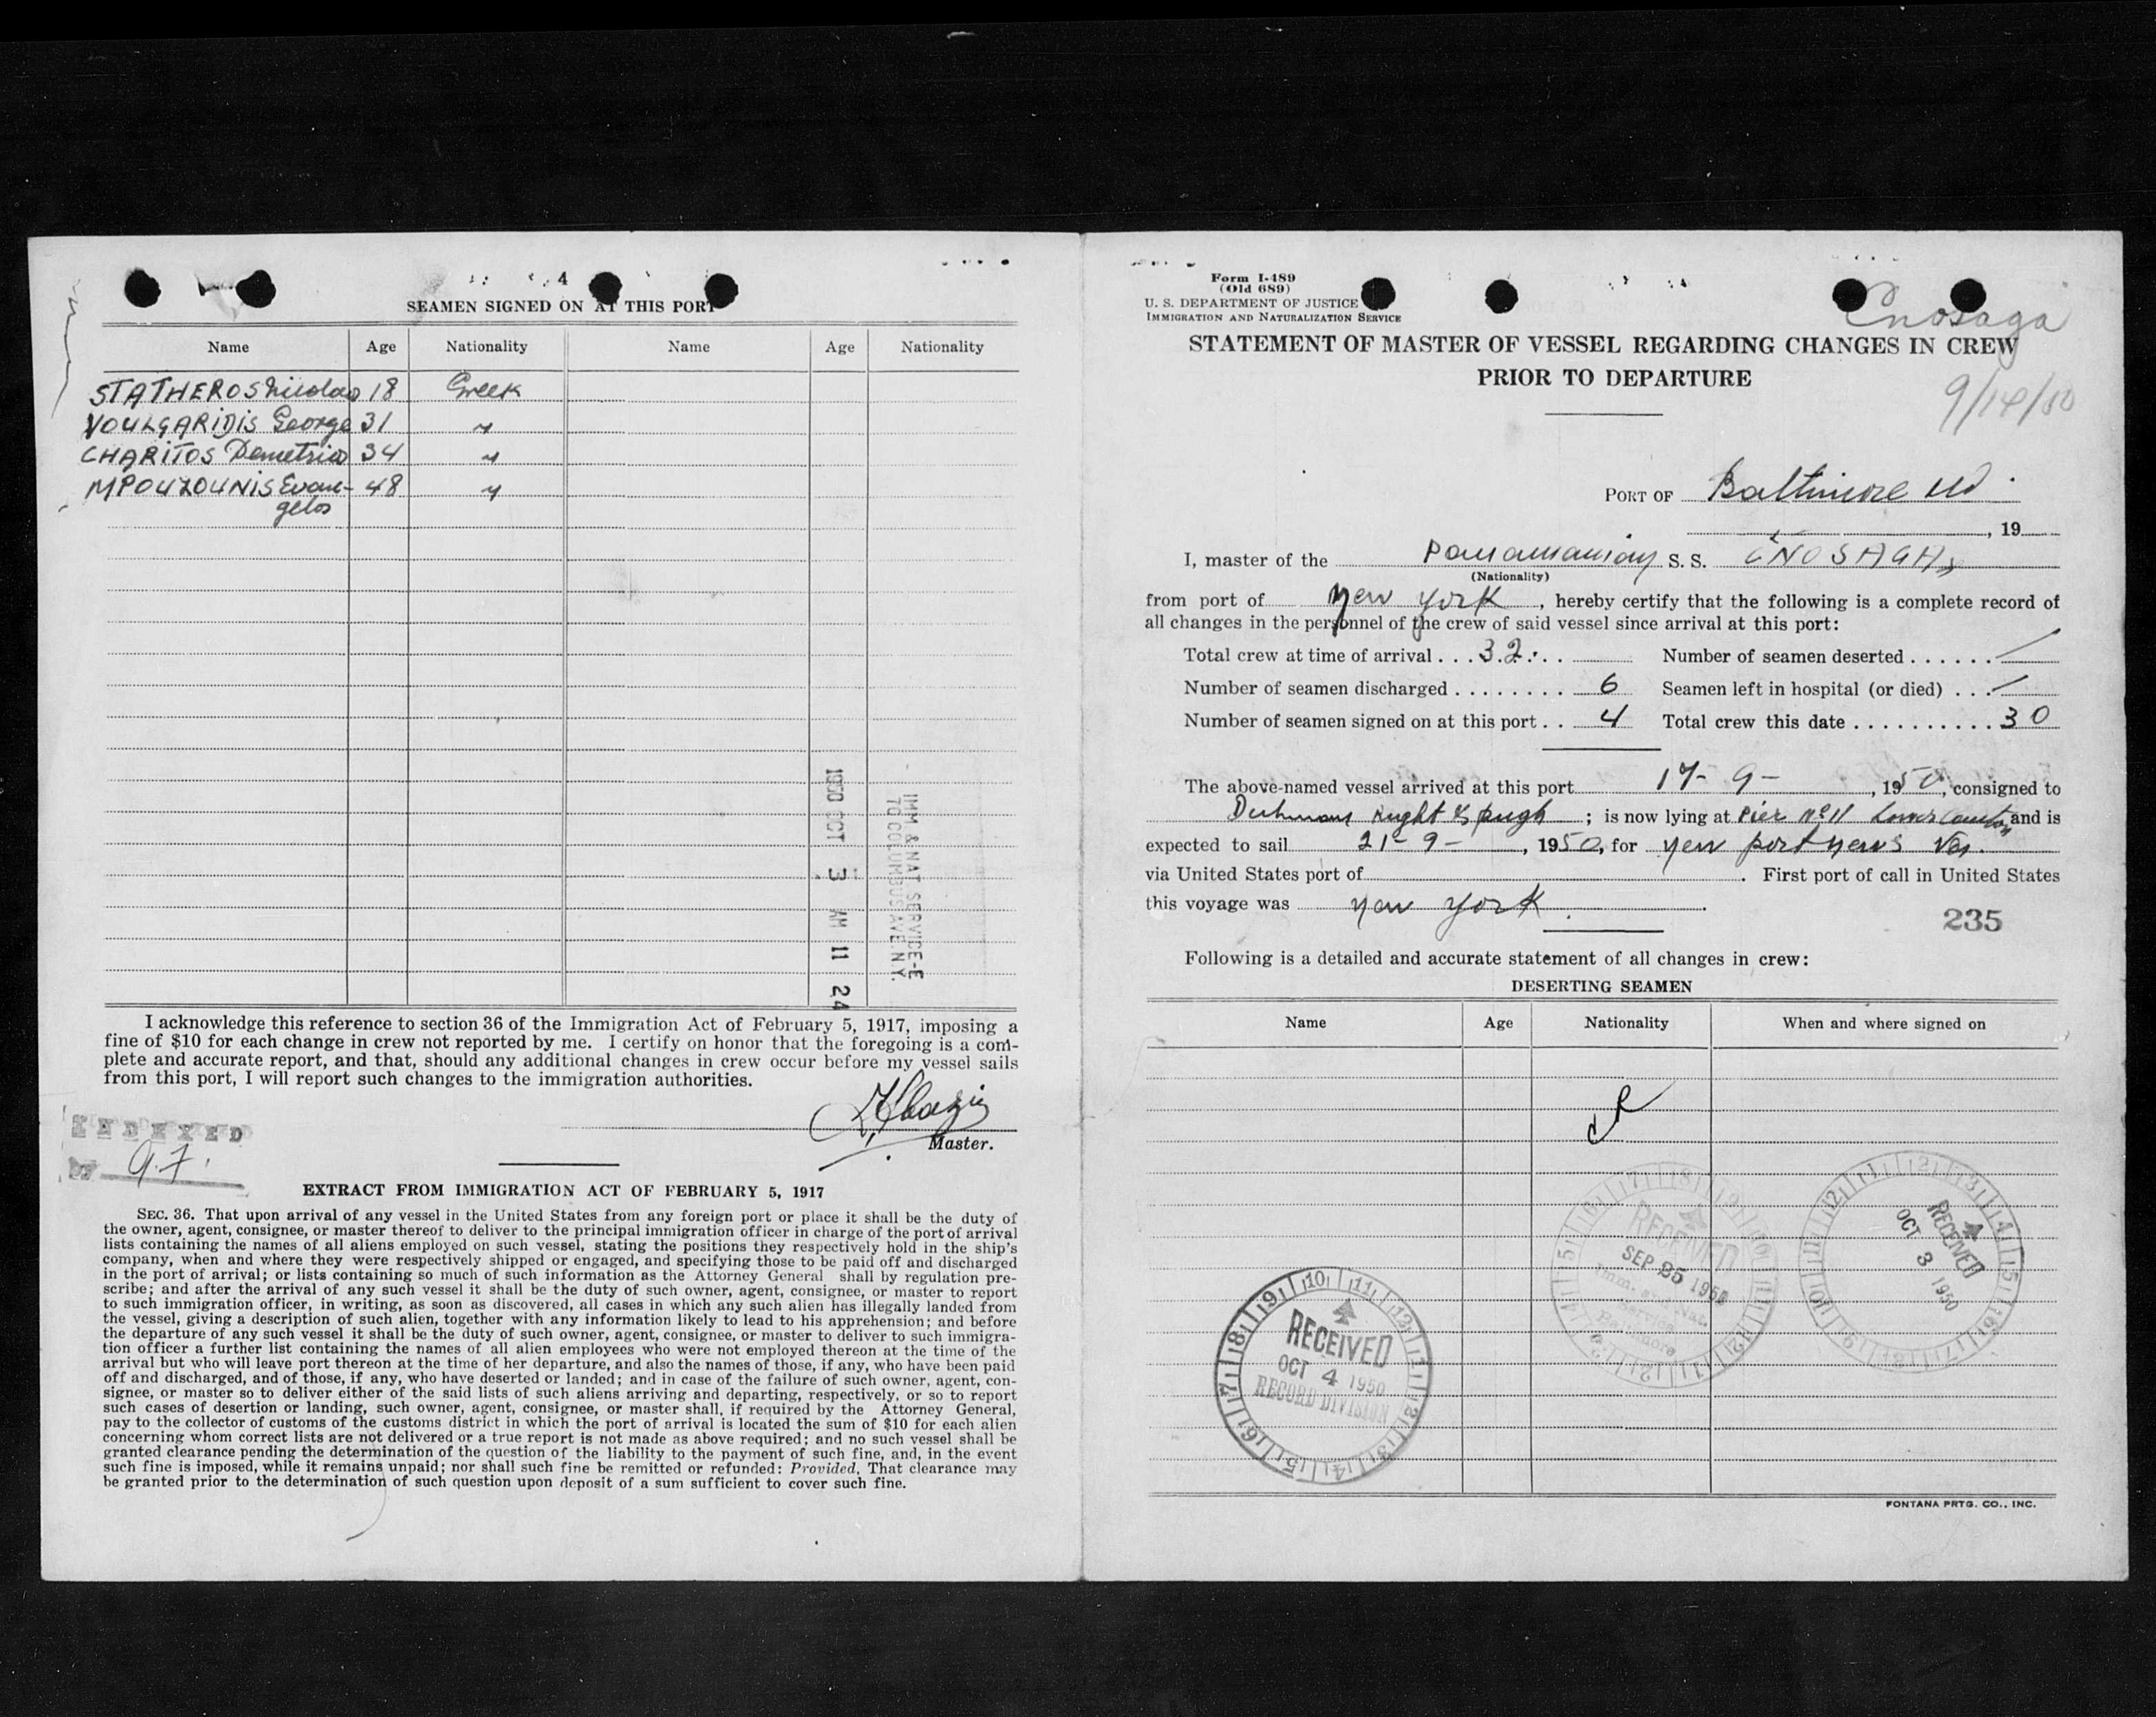 4
SEAMEN SIGNED ON AT THIS PORT
Name Age Nationality Name Age Nationality
STATHEROS Nicolao 18 Greek
VOULGARIDIS George 31 "
CHARITOS Demetrios 34 "
MPOUZOUNIS Evan- 48 "
gelos
1950 OCT 3 AM 11 24
IMM & NAT SERVICE-E
70 COLUMBUS AVE. N.Y.
I acknowledge this reference to section 36 of the Immigration Act of February 5, 1917, imposing a
fine of $10 for each change in crew not reported by me. I certify on honor that the foregoing is a com-
plete and accurate report, and that, should any additional changes in crew occur before my vessel sails
from this port, I will report such changes to the immigration authorities.
Master.
INDEXED
BY
EXTRACT FROM IMMIGRATION ACT OF FEBRUARY 5, 1917
SEC. 36. That upon arrival of any vessel in the United States from any foreign port or place it shall be the duty of
the owner, agent, consignee, or master thereof to deliver to the principal immigration officer in charge of the port of arrival
lists containing the names of all aliens employed on such vessel, stating the positions they respectively hold in the ship's
company, when and where they were respectively shipped or engaged, and specifying those to be paid off and discharged
in the port of arrival; or lists containing so much of such information as the Attorney General shall by regulation pre-
scribe; and after the arrival of any such vessel it shall be the duty of such owner, agent, consignee, or master to report
to such immigration officer, in writing, as soon as discovered, all cases in which any such alien has illegally landed from
the vessel, giving a description of such alien, together with any information likely to lead to his apprehension; and before
the departure of any such vessel it shall be the duty of such owner, agent, consignee, or master to deliver to such immigra-
tion officer a further list containing the names of all alien employees who were not employed thereon at the time of the
arrival but who will leave port thereon at the time of her departure, and also the names of those, if any, who have been paid
off and discharged, and of those, if any, who have deserted or landed; and in case of the failure of such owner, agent, con-
signee, or master so to deliver either of the said lists of such aliens arriving and departing, respectively, or so to report
such cases of desertion or landing, such owner, agent, consignee, or master shall, if required by the Attorney General,
pay to the collector of customs of the customs district in which the port of arrival is located the sum of $10 for each alien
concerning whom correct lists are not delivered or a true report is not made as above required; and no such vessel shall be
granted clearance pending the determination of the question of the liability to the payment of such fine, and, in the event
such fine is imposed, while it remains unpaid; nor shall such fine be remitted or refunded: Provided, That clearance may
be granted prior to the determination of such question upon deposit of a sum sufficient to cover such fine.
Form I-489
(Old 689)
U. S. DEPARTMENT OF JUSTICE
IMMIGRATION AND NATURALIZATION SERVICE
Enosaga
STATEMENT OF MASTER OF VESSEL REGARDING CHANGES IN CREW
PRIOR TO DEPARTURE
PORT OF Baltimore Md.
, 19
I, master of the Panamanian S. S. ENOSAGA,
(Nationality)
from port of New York, hereby certify that the following is a complete record of
all changes in the personnel of the crew of said vessel since arrival at this port:
Total crew at time of arrival . . . 32 . . Number of seamen deserted . . . . . . /
Number of seamen discharged . . . . . . . . 6 Seamen left in hospital (or died) . . . /
Number of seamen signed on at this port . . 4 Total crew this date . . . . . . . . . . 30
The above-named vessel arrived at this port 17-9-, 1950, consigned to
; is now lying at Pier No 11 Lower and is
expected to sail 21-9-, 1950, for New port News Va.
via United States port of . First port of call in United States
this voyage was New York.
235
Following is a detailed and accurate statement of all changes in crew:
DESERTING SEAMEN
Name Age Nationality When and where signed on
RECEIVED
SEP 25 1950
Imm. and Nat.
Service
Baltimore
RECEIVED
OCT 3 1950
RECEIVED
OCT 4 1950
RECORD DIVISION
FONTANA PRTG. CO., INC.